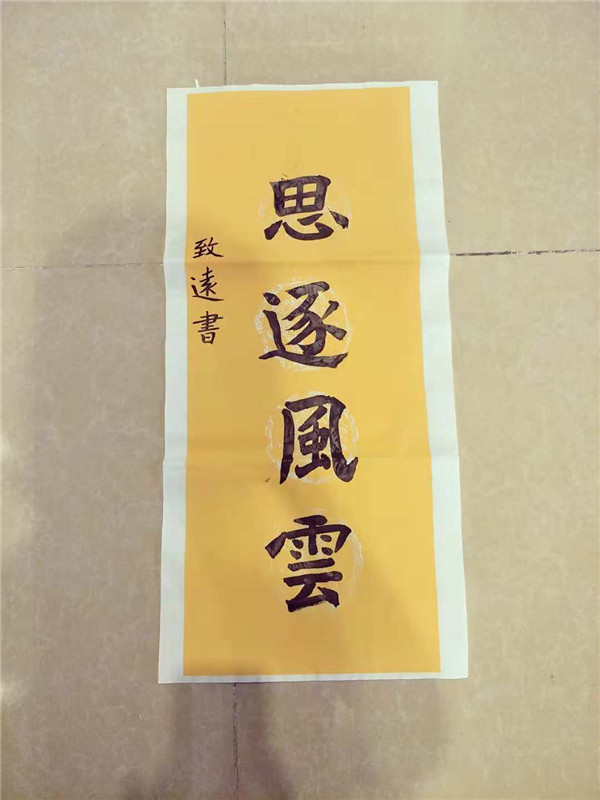 思逐風雲
致遠書